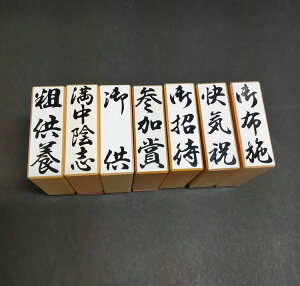 粗供養
満中陰志
御供
参加賞
御招待
快気祝
御布施